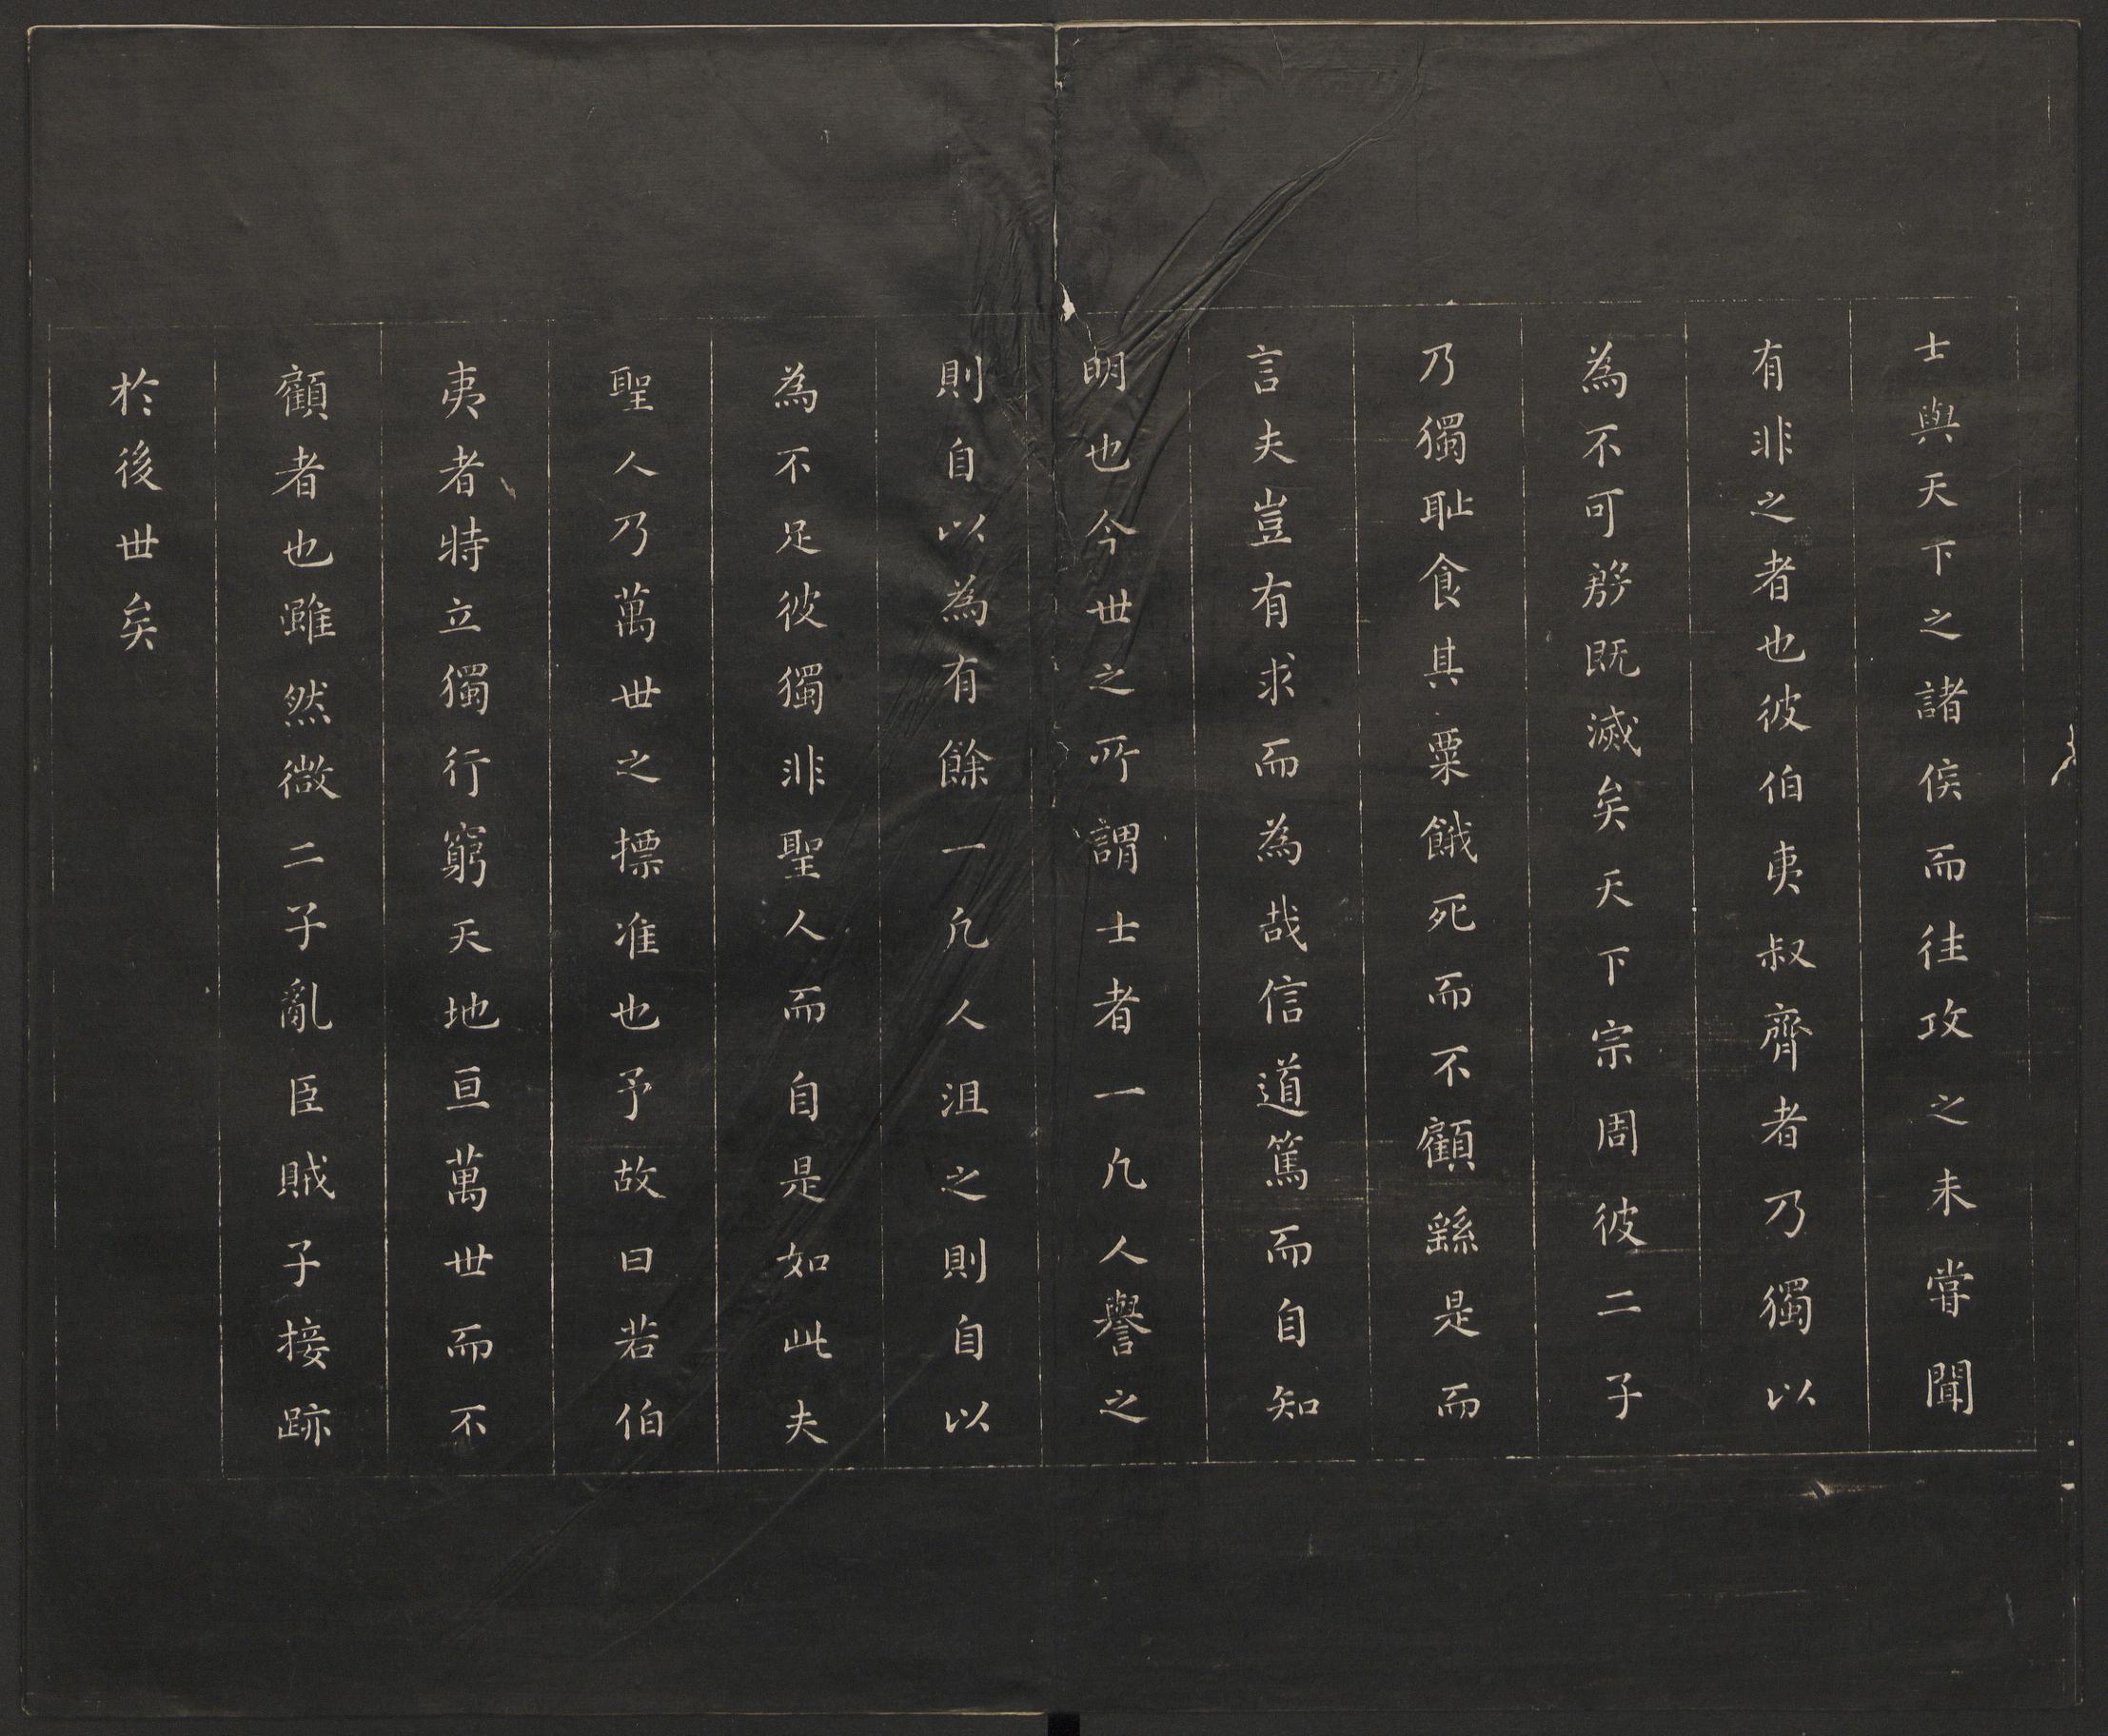 士與天下之諸侯而往攻之未甞聞
有非之者也彼伯夷叔齊者乃獨以
為不可殷既滅矣天下宗周彼二子
乃獨恥食其粟餓死而不顧繇是而
言夫豈有求而為哉信道篤而自知
明也今世之所謂士者一凡人譽之
則自以為有餘一凡人沮之則自以
為不足彼獨非聖人而自是如此夫
聖人乃萬世之摽准也予故曰若伯
夷者特立獨行窮天地亘萬世而不
顧者也雖然微二子亂臣賊子接跡
於後世矣